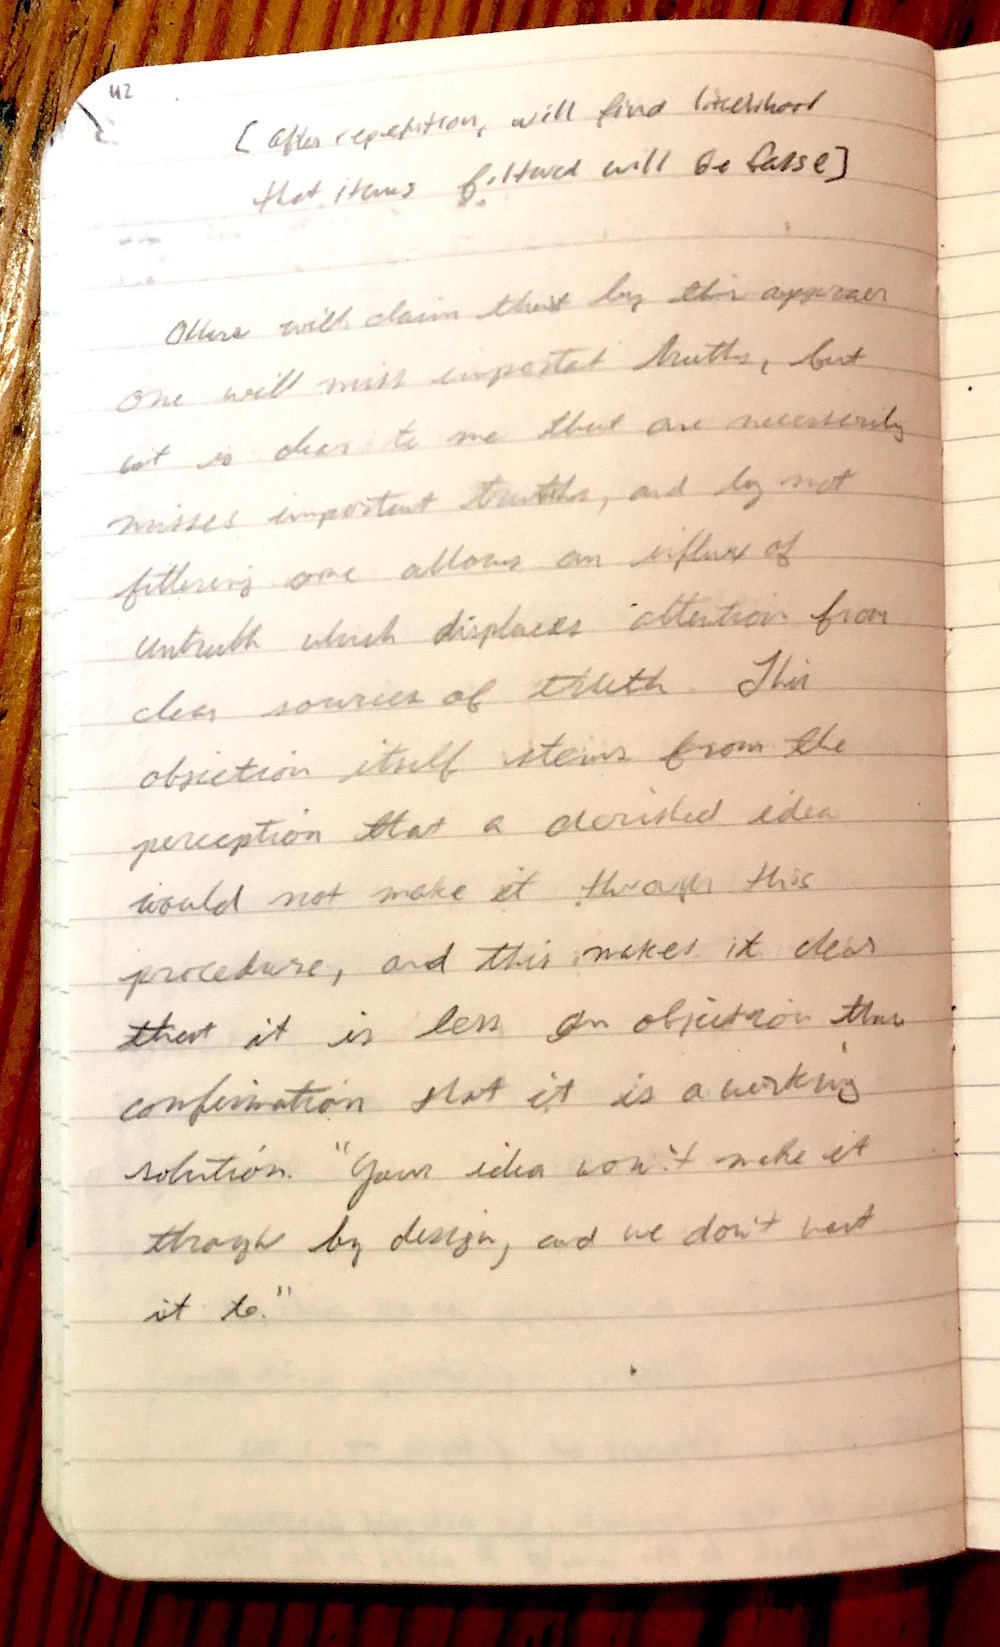 42
[ after repetition, will find likelihood
that items filtered will be false]
Others will claim that by this approach
one will miss importat truths, but
it is clear to me that one necessarily
misses important truths, and by not
filtering one allows an influx of
untruth which displaces attention from
clear sources of truth. This
objection itself stems from the
perception that a cherished idea
would not make it through this
procedure, and this makes it clear
that it is less an objection than
confirmation that it is a working
solution. "Your idea won't make it
through by design, and we don't want
it to."